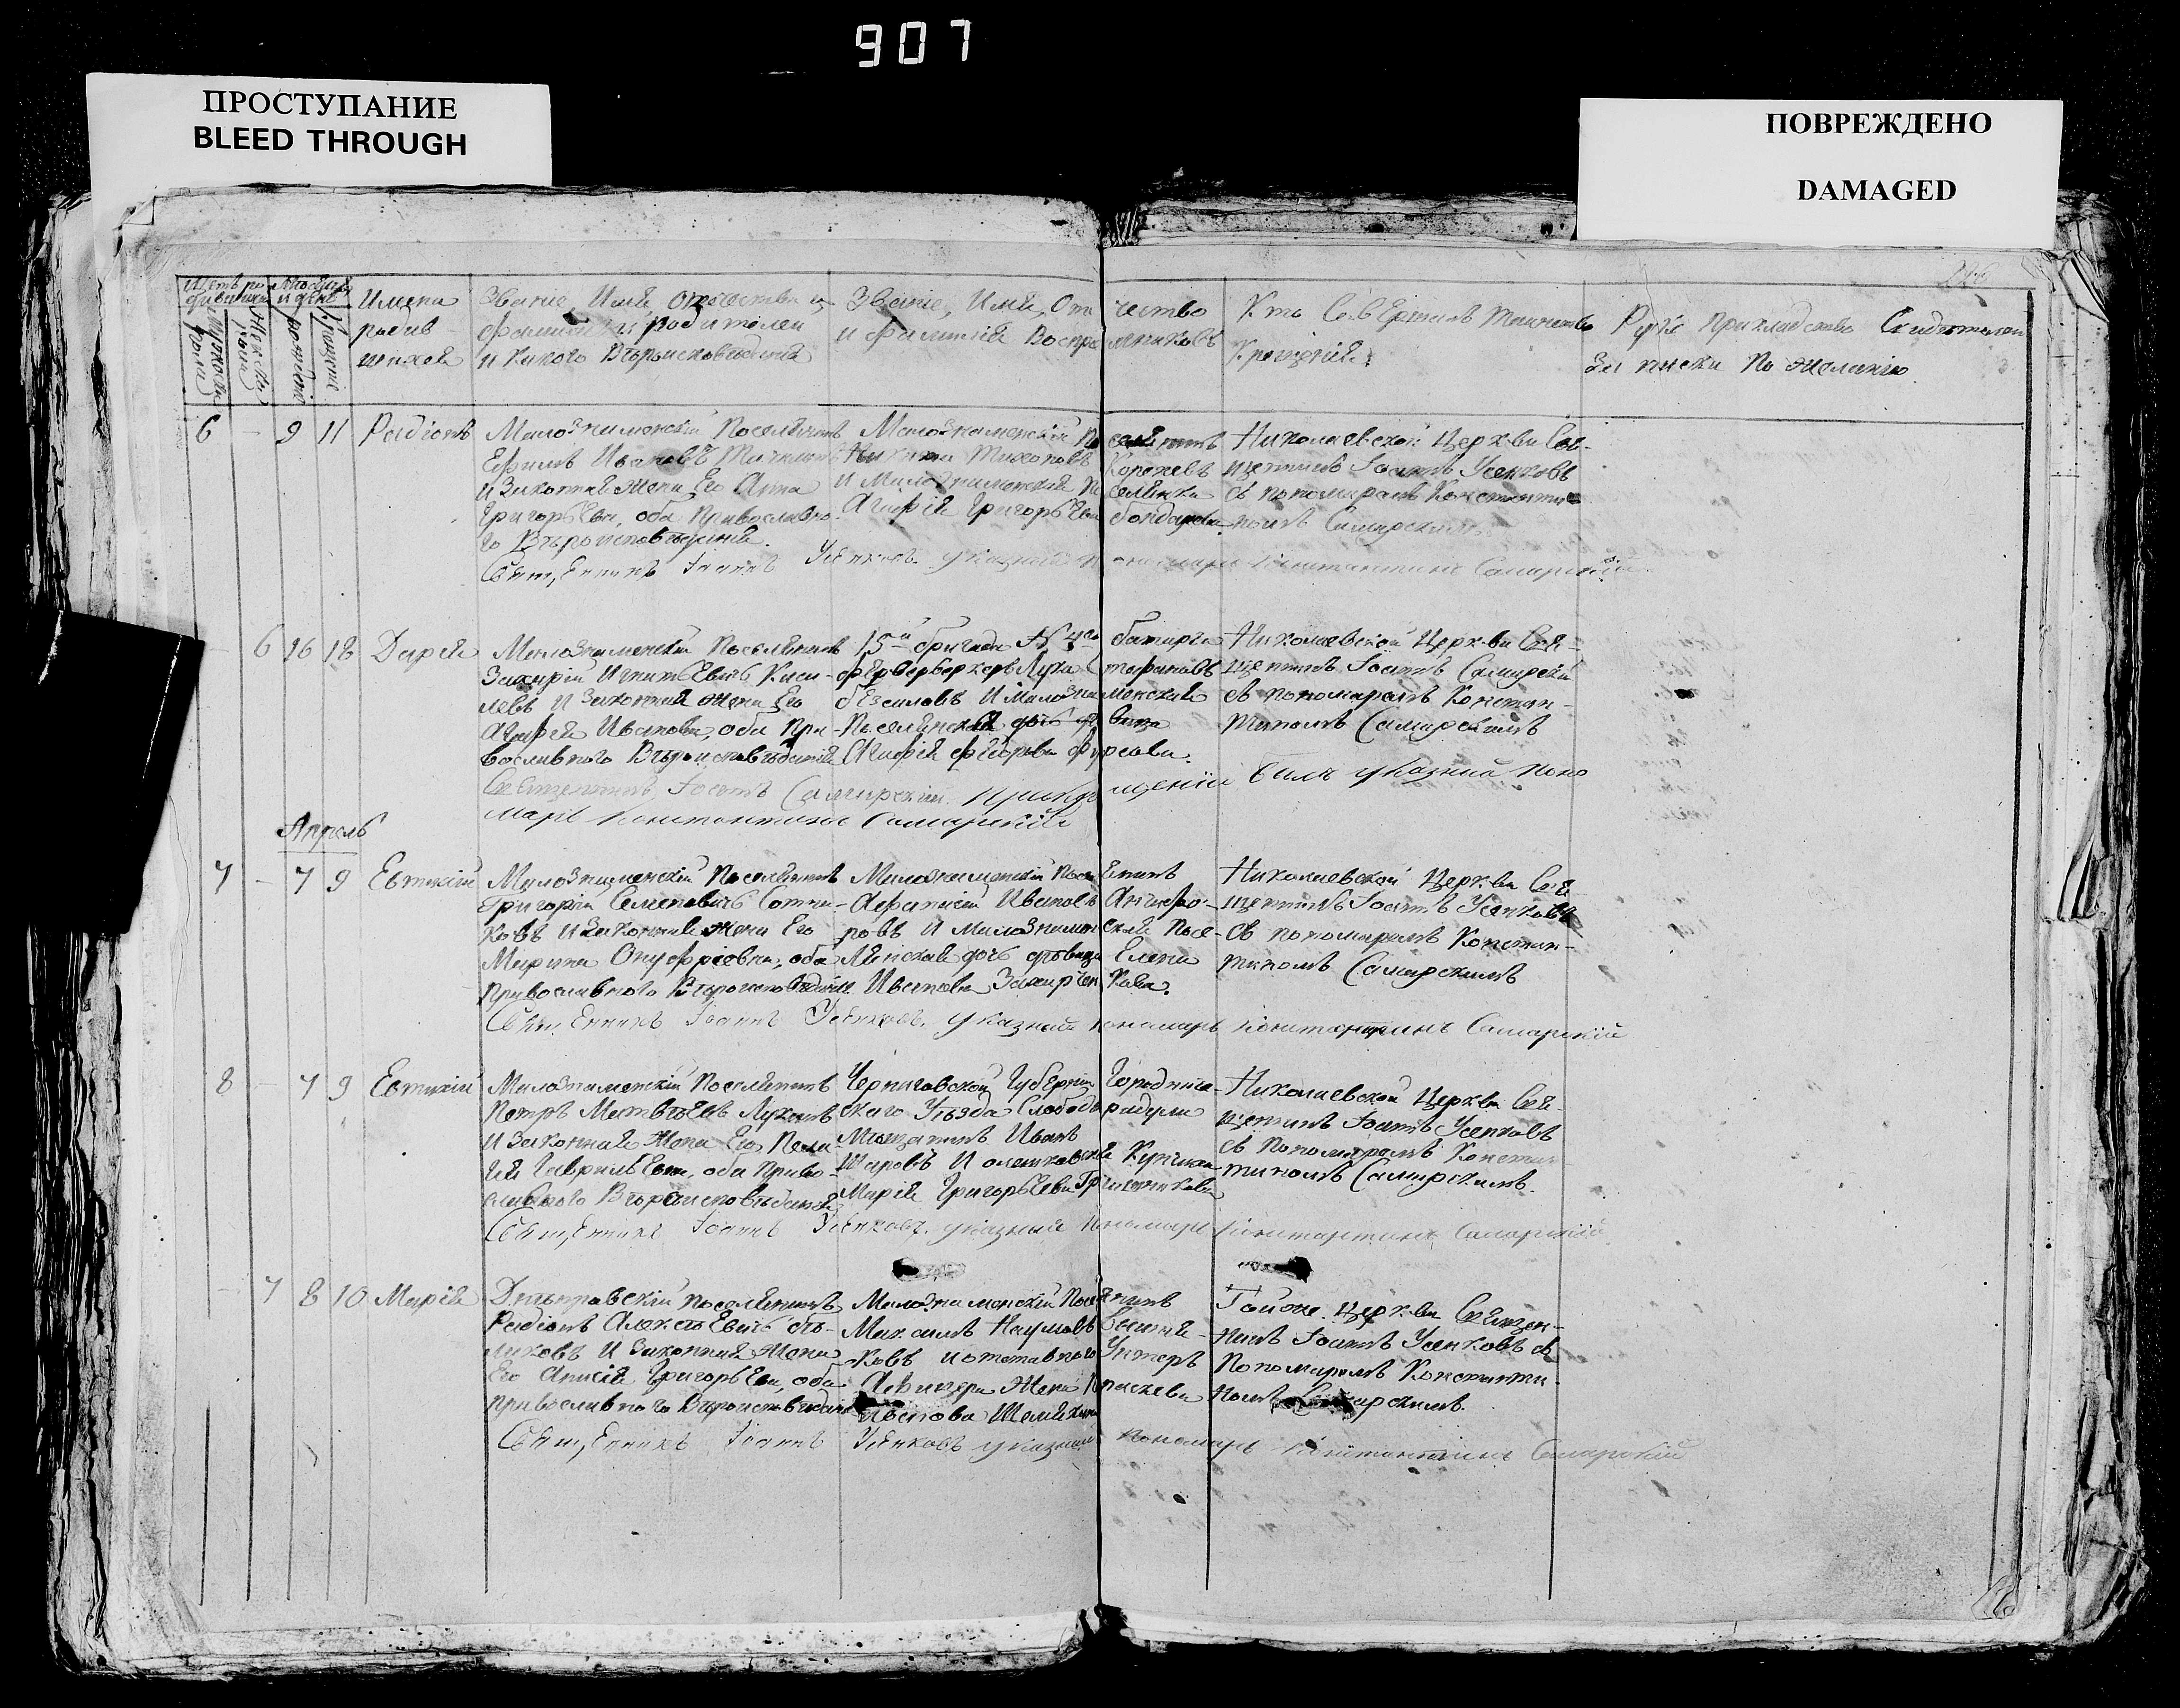 907
ПРОСТУПАНИЕ
BLEED THROUGH
ПОВРЕЖДЕНО
DAMAGED
Имена
родив-
шихся
Званіе, Имя, Отечество и
фамилія родителей
и какого Вѣроисповѣданія
Званіе, Имя, Отечество
и фамилія Воспріемниковъ
Кто Совершалъ таинство
Крещенія
Рукоприкладство Свидетелей
записки по желанію
6 - 9 11 Радіонъ
Малознаменскій Поселянинъ
Ефимъ Ивановъ
и Законная Жена Его Анна
Григорьева, оба Православно-
го Вѣроисповѣданія.
Малознаменскій Поселянинъ
Никита Тихоновъ Коревъ
и Малознаменская Поселянка
Агафія Григорьева бондарева
Николаевской Церкви Свя-
щенникъ Іоаннъ Усенковъ
съ пономаремъ Константи-
номъ Самарскимъ
Священникъ Іоаннъ Усенковъ. указный пономарь Константинъ Самарскій
- 6 16 18 Дарія
Малознаменскій Поселянинъ
Захарій Игнатьевичъ Кисе-
левъ И Законная Жена Его
Агафія Иванова, оба Пра-
вославного Вѣроисповѣданія
15й бригады № 4й батареи
фейерверкеръ Лука Стефановъ
безсиловъ И Малознаменская
Поселянская дочь девица
Агафія Фёдорова Фурсова.
Николаевской Церкви Свя-
щенникъ Іоаннъ Самарскій
съ пономаремъ Констан-
тиномъ Самарскимъ
Священникъ Іоаннъ Самарскій. При крещеніи былъ указный поно
марь Константинъ Самарскій
Апрель
7 - 7 9 Евтихій
Малознаменскій Поселянинъ
Григорій Семеновичъ Сотни-
ковъ И Законная Жена Его
Марина Онуфріевна, оба
Православного Вѣроисповѣданія
Малознаменскій Поселянинъ
Афанасій Ивановъ Анцифо-
ровъ И Малознаменская Посе-
лянская дочь девица Елена
Иванова Захарченкова.
Николаевской Церкви Свя-
щенникъ Іоаннъ Усенковъ
Съ пономаремъ Констан-
тиномъ Самарскимъ
Священникъ Іоаннъ Усенковъ. указный пономарь Константинъ Самарскій
8 - 7 9 Евтихій
Малознаменскій Поселянинъ
Петръ Матвѣевъ
И Законная Жена Его Пела-
гія Гаврильева, оба Право-
славного Вѣроисповѣданія
Черниговской Губерніи Городниц-
каго Уѣзда Слободы радули
Мѣщанинъ Иванъ
Шаровъ И олешковская Купчиха
Марія Григорьева
Николаевской Церкви Свя-
щенникъ Іоаннъ Усенковъ
съ Пономаремъ Констан-
тиномъ Самарскимъ.
Священникъ Іоаннъ Усенковъ. указный пономарь Константинъ Самарскій
- 7 8 10 Марія
Днѣпровскій поселянинъ
Радіонъ Алексѣевичъ бѣ-
ликовъ И Законная Жена
Его Анисія Григорьева, оба
православного Вѣроисповѣдан
Малознаменскій Поселянинъ
Максимъ Наумовъ
ковъ и отставного Унтеръ
Афицера Жена Параскева
Той же Церкви Священ-
никъ Іоаннъ Усенковъ съ
Пономаремъ Константи-
номъ Самарскимъ.
Священникъ Іоаннъ Усенковъ указный пономарь Константинъ Самарскій